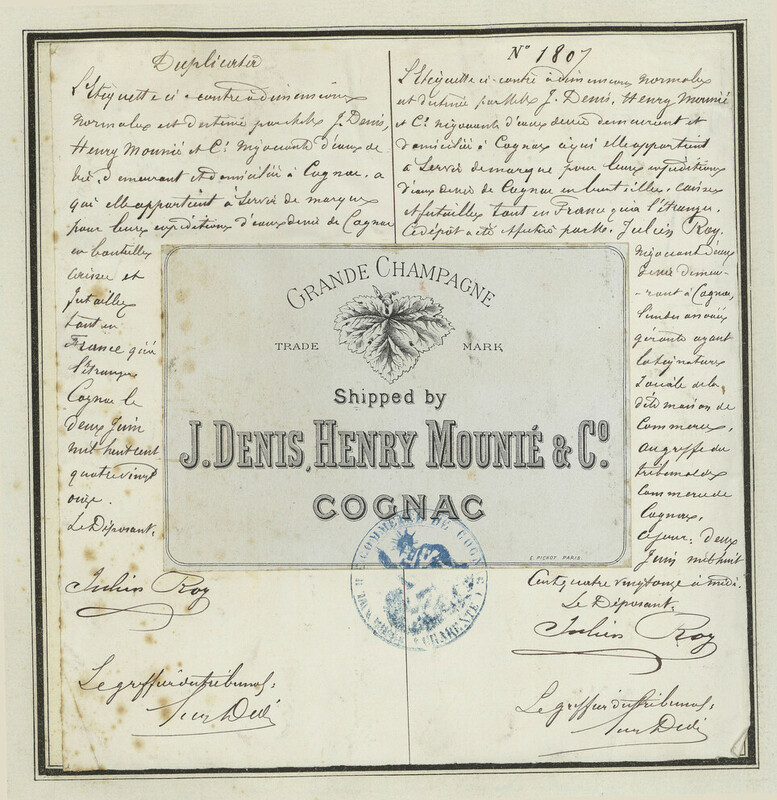 Duplicata
L'Etiquette ci-contre à dimensions
normales est destinée par MM. J. Denis,
Henry Mounié et Cie négociants d'eaux de
vie, demeurant et domiciliés à Cognac, a
qui elle appartient à Servir de marque
pour leurs expéditions d'eaux de vie de Cognac
en bouteilles
caisses et
futailles
tant en
France qu'à
l'étranger
Cognac le
deux Juin
mil huit cent
quatre vingt
onze.
Le Déposant:
Julien Roy
Le greffier du tribunal:
N° 1807
L'Etiquette ci-contre à dimensions normales
est destinée par MM. J. Denis, Henry Mounié
et Cie négociants d'eaux de vie demeurant et
domiciliés à Cognac à qui elle appartient
à Servir de marque pour leurs expéditions
d'eaux de vie de Cognac en bouteilles, caisses
et futailles tant en France qu'à l'étranger.
Ce dépôt a été effectué par M. Julien Roy.
négociant d'eaux
de vie demeu-
-rant à Cognac,
l'un des associés
gérants ayant
la signature
Sociale de la
dite maison de
Commerce,
au greffe du
tribunal de
Commerce de
Cognac,
ce jour, deux
Juin mil huit
Cent quatre vingt onze à midi.
Le Déposant:
Julien Roy
Le greffier du tribunal:
GRANDE CHAMPAGNE
TRADE MARK
Shipped by
J. DENIS, HENRY MOUNIÉ & Co.
COGNAC
E. PICHOT. PARIS.
COMMERCE DE COGNAC
CHARENTE